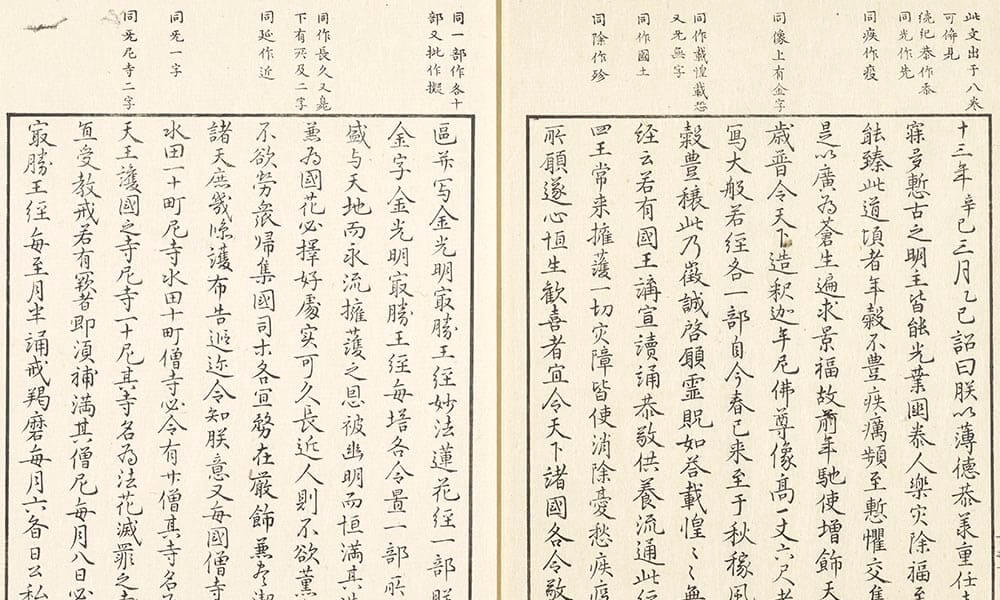 此文出于八米
可脩見
続紀恭作忝
同光作先
同疾作疫
同像上有金字
同作載惶載恐
又无無字
同作國土
同除作殄
十三年辛巳三月乙巳詔曰朕以薄德恭羕重任
寐多慙古之明主皆能光業國泰人樂灾除福至
能臻此道頃者年穀不豊疾癘頻至慙懼交集
是以廣為蒼生遍求景福故前年馳使增飾天
歳普令天下造釈迦牟尼佛尊像髙一丈六尺者
写大般若経各一部自今春已来至于秋稼風
穀豊穣此乃徴誠啓願霊貺如荅載惶〻無
経云若有國王講宣讀誦恭敬供養流通此経
四王常来擁護一切灾障皆使消除憂愁疾疫
所願遂心恒生歓喜者宜令天下諸國各令敬
同一部作各十
部又批作擬
同作長久又亀
下有灾及二字
同延作近
同无一字
同无尼寺二字
區并写金光明冣勝王経妙法蓮花経一部朕
金字金光明冣勝王経每塔各令置一部所
盛与天地而永流擁護之恩被幽明而恒満其
兼為國花必擇好處实可久長近人則不欲薫
不欲勞衆帰集國司等各宜務在厳飾兼盡潔
諸天庶幾臨護布告遐迩令知朕意又每國僧寺
水田一十町尼寺水田十町僧寺必令有廿僧其寺名
天王護國之寺尼寺一十尼其寺名為法花滅罪之
宜受教戒若有闕者即湏補満其僧尼每月八日必
冣勝王経每至月半誦戒羯磨每月六斎日公私